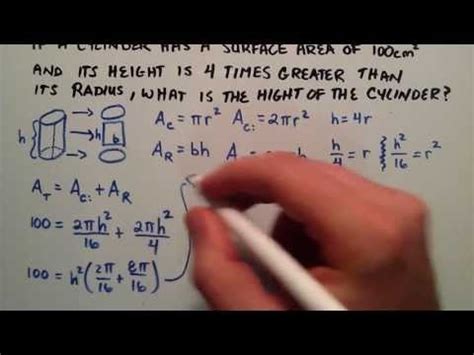 IF A CYLINDER HAS A SURFACE AREA OF 100cm²
AND ITS HEIGHT IS 4 TIMES GREATER THAN
ITS RADIUS, WHAT IS THE HIGHT OF THE CYLINDER?
h b
A_C = πr² A_C: = 2πr² h = 4r
A_R = bh A h h/4 = r h²/16 = r²
A_T = A_C: + A_R
100 = 2πh²/16 + 2πh²/4
100 = h²(2π/16 + 8π/16)